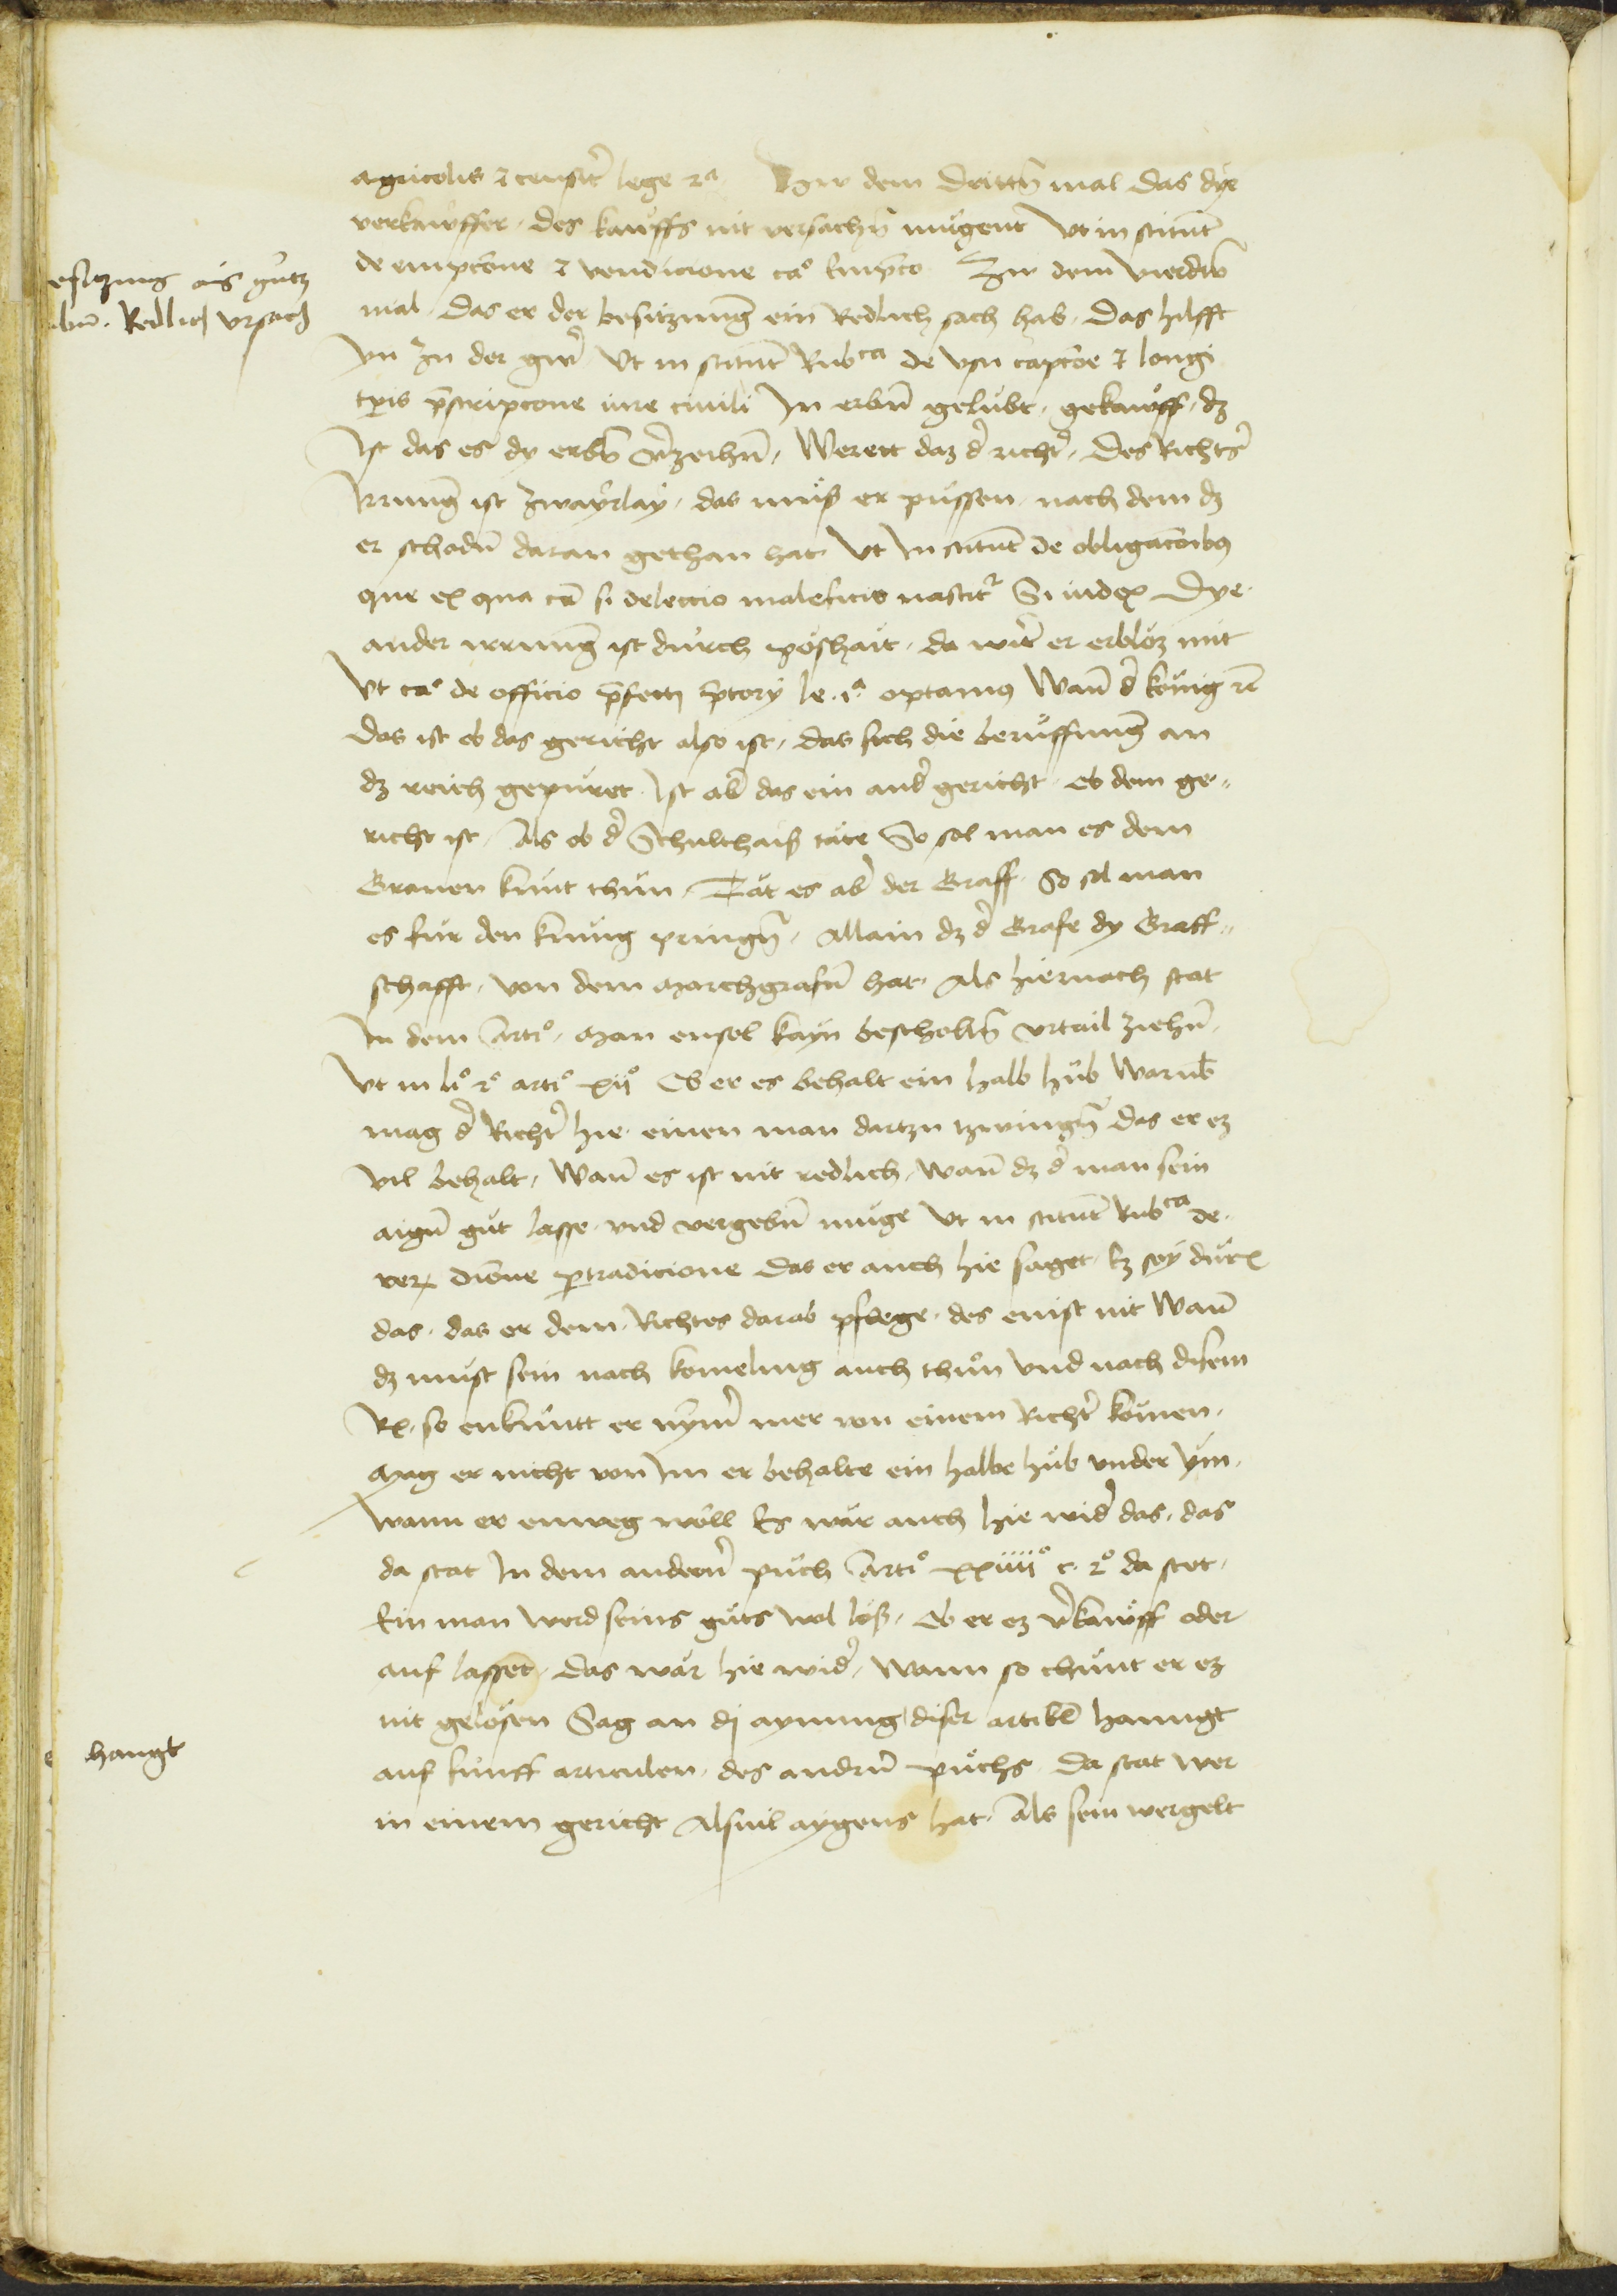 agricolis ⁊ censit̄ lege 2ᵃ Zw dem dritten̄ mal das dye
verkawffer · des kawffs nit versachn̄ mügent Vt in stitut̄
de empcōne ⁊ vendicione caº Empto Zw dem vierdtn̄
mal · das er der besitzung ein Redlich sach hab · das hilfft
yn zu der gwer̄ Vt in stitut̄ Rubᶜᵃ de vsu capcōe ⁊ longi
tp̄is p̄scripcone iure ciuili In erbn̄ gelubt · gekawff · dz
Ist das es dy erbn̄ v̄zeihn̄, Werett daz d̄ richt̄ · des Richts̄
Irrung ist zwayrlay · das muß er püssen · nach dem dz
er schadn̄ daran gethan hat Vt In stitut̄ de obligacōibꝰ
que ex qua cā si delectio maleficio nascit̄ Si iudex Dye
ander irrung ist durch poshait · da wirt er erbloz mit
Vt caº de officio p̄fecti p̄tory le · iª optamꝰ Wan̄ d̄ kỏnig rc̄
das ist ob das gericht also ist, das sich die beruffung an
dz reich gepüret Ist ab̄ das ein and̄ gericht · ob dem ge„
richt ist · Als ob d̄ Schulthaiß täte So sol man es dem
Grauen kunt thün · Tät es ab̄ der Graff So sol man
es für den künig pringn̄, Allain dz d̄ Grafe dy Graff„
schafft, von dem Marchgrafn̄ hat · Als hiernach stat
In dem Artiº · Man ensol kayn bescholtn̄ vrtail ziehn̄ ·
Vt in liº 2º artiº xiiº Ob er es behalt ein halb hüb Warub̄
mag d̄ Richt̄ hie einen man dartzu tzwingn̄ das er ez
vil behalt, Wan̄ es ist nit redlich, wan̄ dz d̄ man sein
aign̄ gut lasse · vnd vergebn̄ muge Vt in stitut̄ Rubᶜᵃ de ·
rer diōne p̱ tradicione Das er auch hie saget · Ez sey durch
das · das er dem Richtes darab pflege · des enist nit Wan̄
dz must sein nach komeling auch thůn Vnd nach disem
Rx · so enkuntt er nȳm̄ mer von einem Richt̄ komen ·
Mag er nicht von Im er behalte ein halbe hub vnder ym ·
wann er enweg wöll Es wär auch hie wid̄ das · das
da stat In dem andern̄ puch Artiº xxiiiiº c · 2º da stet ·
Ein man werd seins guts wol loß, Ob er ez v̄kawff oder
auf lasset · das wär hie wid̄, Wann so chunt er ez
nit gelosen Sag an dj aynung diser artikel̄ hanngt
auf funff articulen · des andrn̄ puchs Da stat wer
in einem gericht Alsuil aygens hat · Als sein wergelt
esitzung ais gutz
abn̄ · Redlich vrsach
hangt